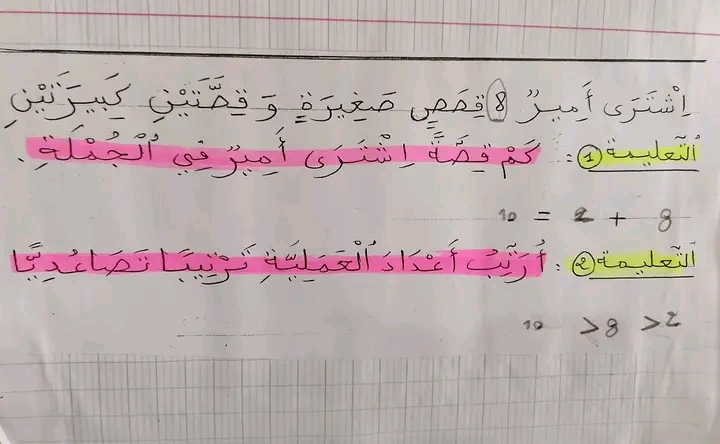 اِشْتَرَى أَمِيرٌ 8 قِصَصٍ صَغِيرَةٍ وَ قِصَّتَيْنِ كَبِيرَتَيْنِ
اَلتَّعْلِيمة 1 : كَمْ قِصَّةً اِشْتَرَى أَمِيرٌ فِي اُلْجُمْلَةِ .
8 + 2 = 10
اَلتَّعْلِيمة 2 : أُرَتِّبُ أَعْدَادَ اُلْعَمَلِيَّةِ تَرْتِيبًا تَصَاعُدِيًّا
2 < 8 < 10